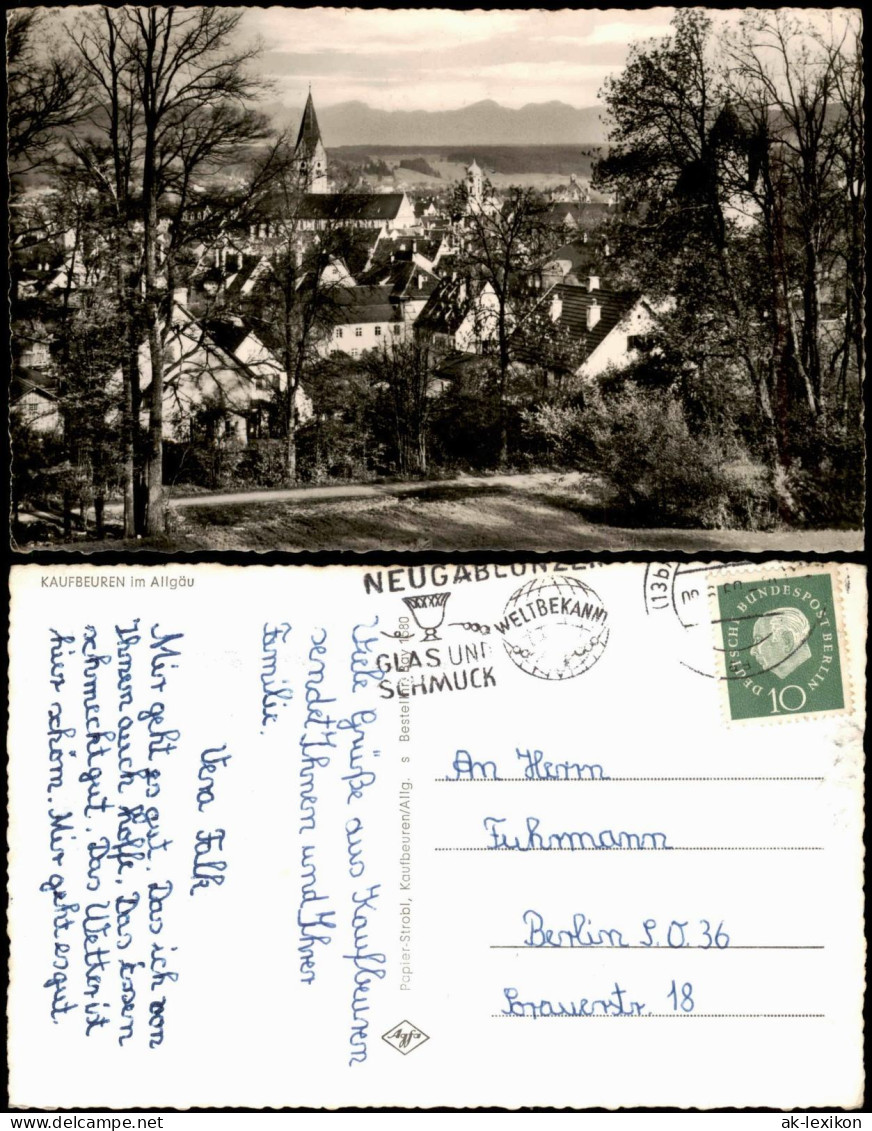 KAUFBEUREN im Allgäu
Viele Grüße aus Kaufbeuren
sendet Ihnen und Ihrer
Familie.
Vera Falk
Mir geht es gut. Das ich von
Ihnen auch hoffe. Das Essen
schmeckt gut. Das Wetter ist
hier schön. Mir geht es gut.
Papier-Strobl, Kaufbeuren/Allg. s Bestell-Nr. 1680
Agfa
NEUGABLONZER
GLAS UND
SCHMUCK
WELTBEKANNT
(13b)
DEUTSCHE BUNDESPOST BERLIN
10
An Herrn
Fuhrmann
Berlin S.O. 36
Brauerstr. 18
ak-lexikon